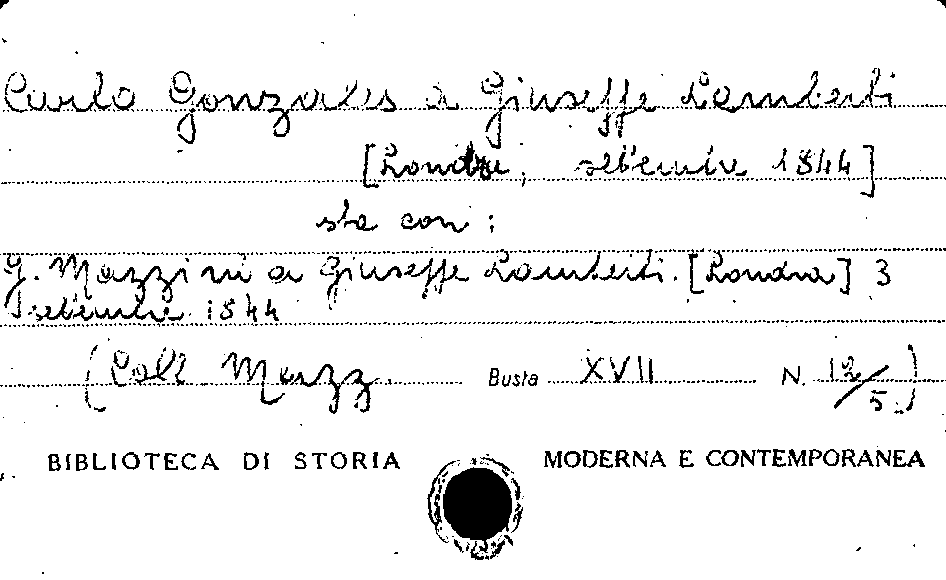 Carlo Gonzales a Giuseppe Lamberti
[Londra, settembre 1844]
sta con:
G. Mazzini a Giuseppe Lamberti. [Londra] 3
settembre 1844
(Coll. Mazz. Busta XVII N. 12/5.)
BIBLIOTECA DI STORIA MODERNA E CONTEMPORANEA